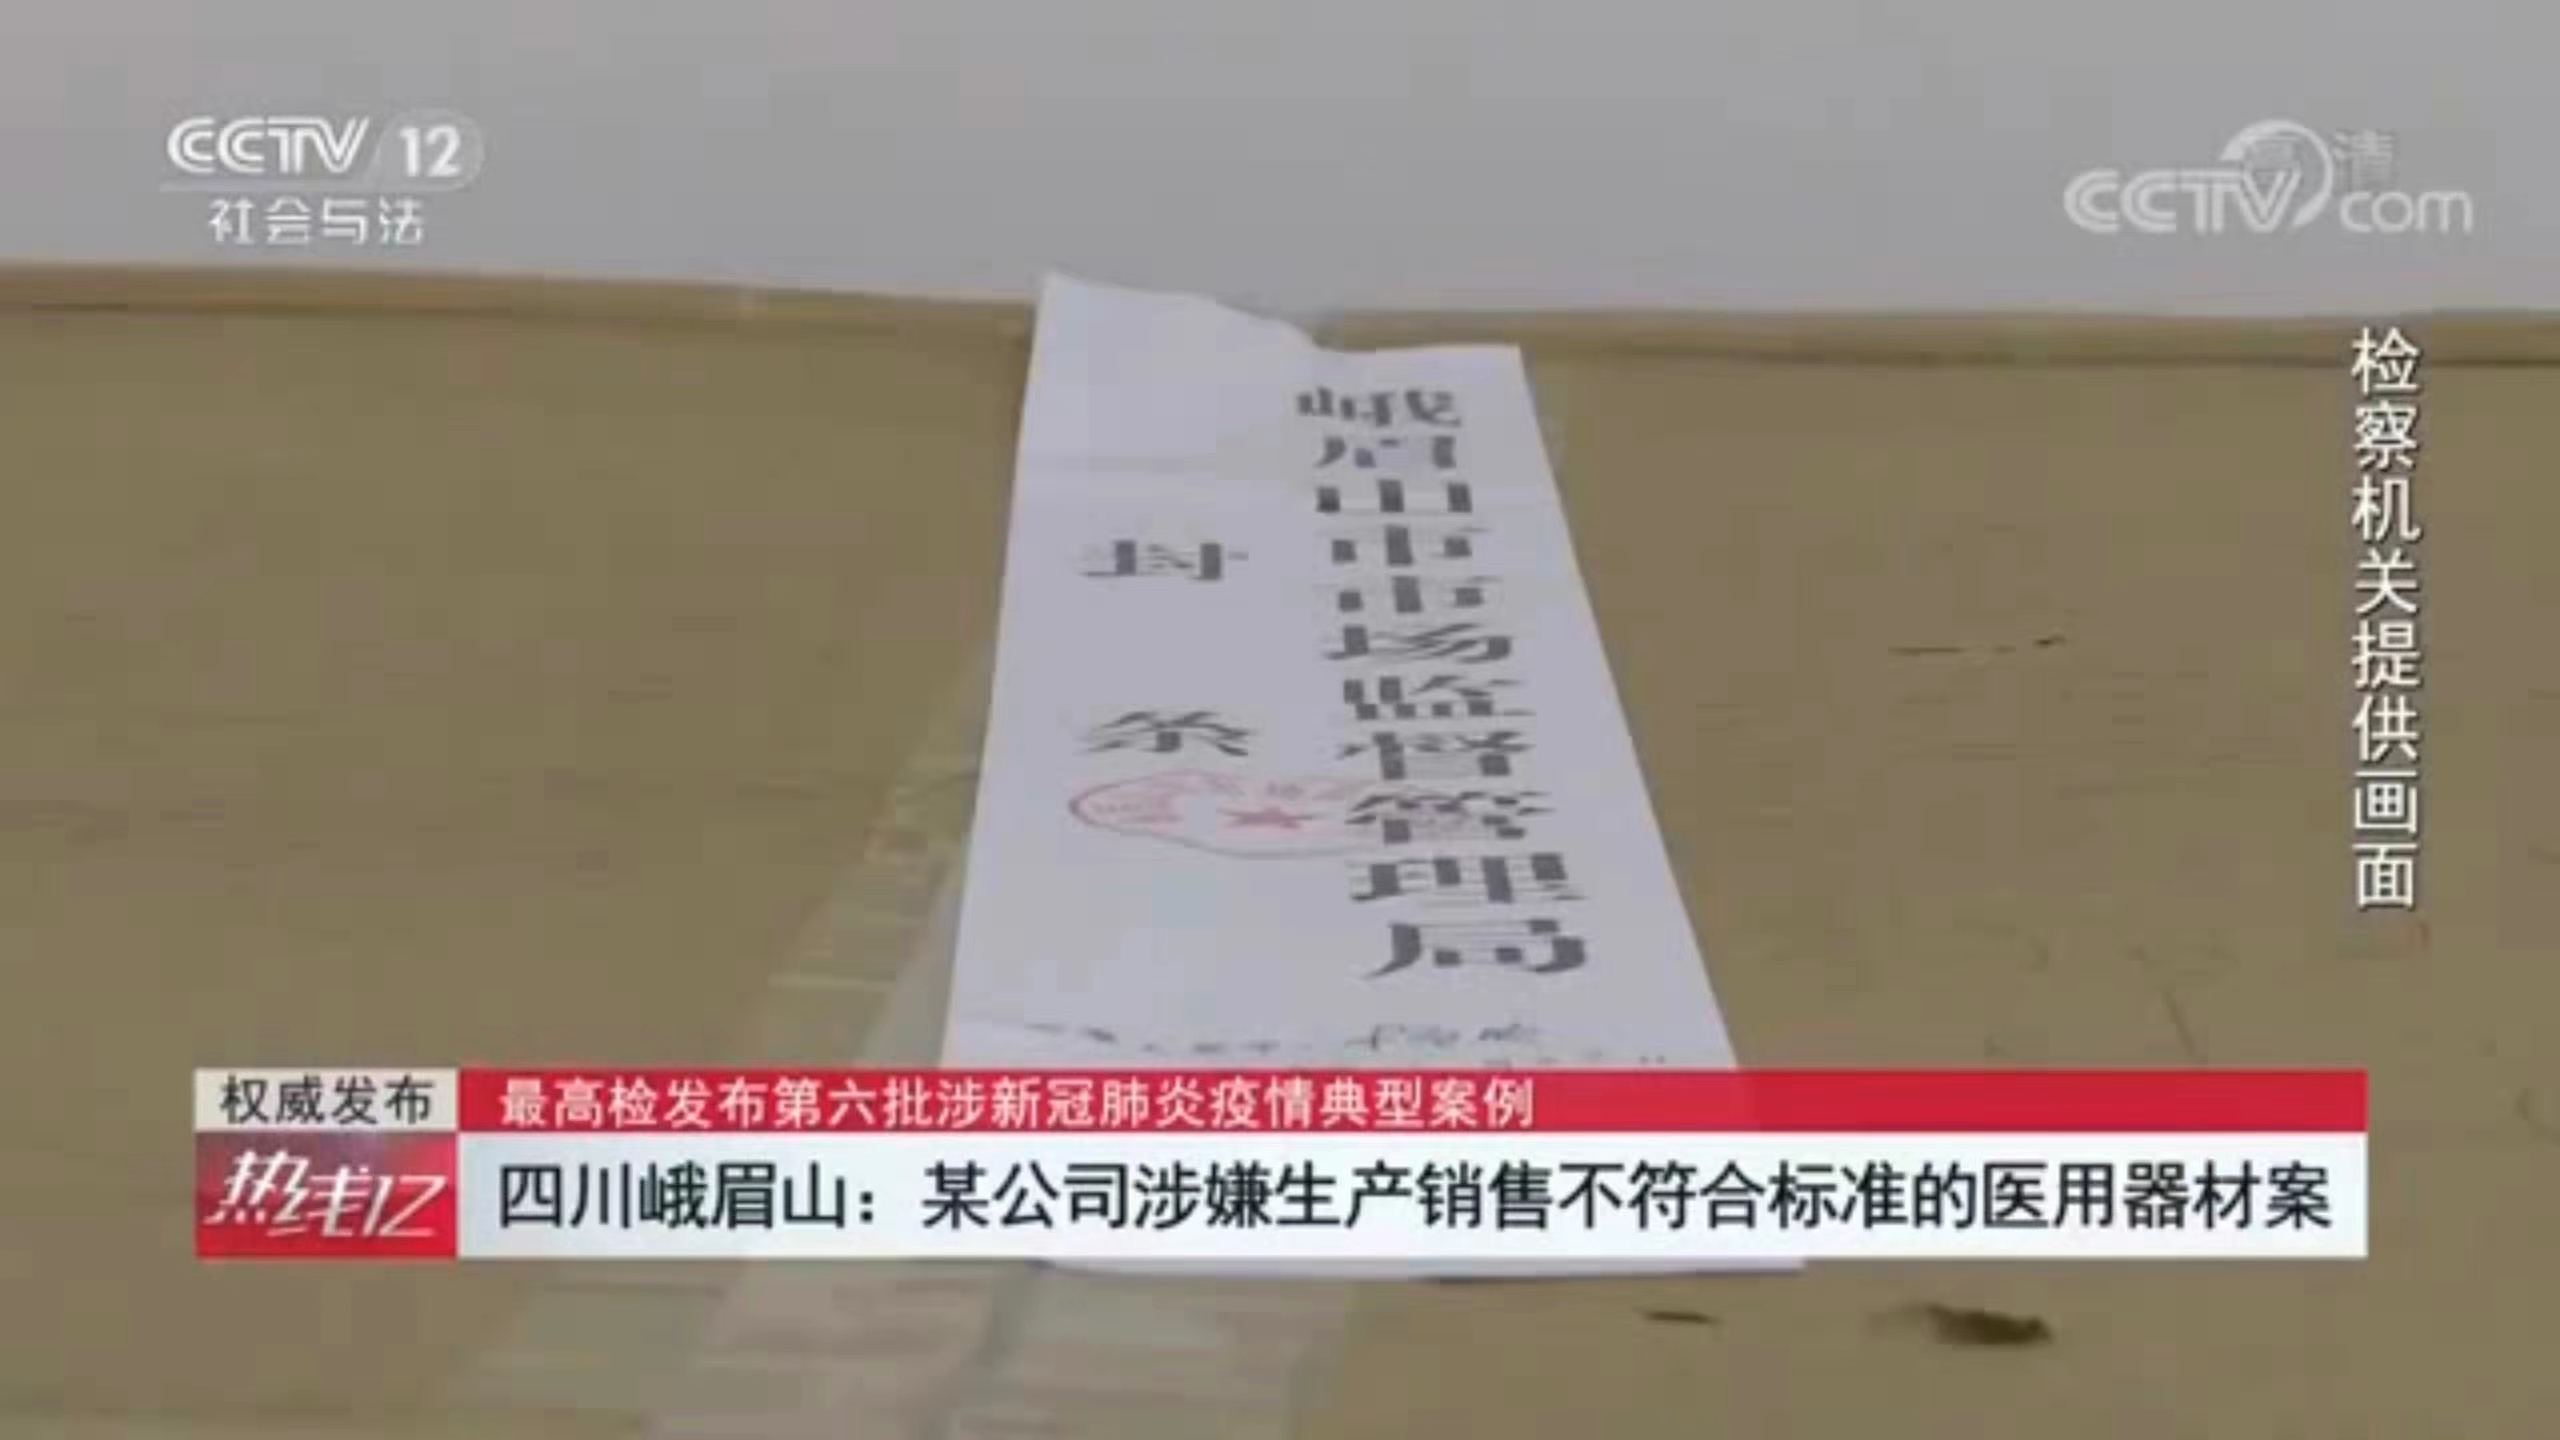 CCTV 12
社会与法
高清
CCTV com
检察机关提供画面
峨眉山市市场监督管理局
封条
权威发布
最高检发布第六批涉新冠肺炎疫情典型案例
热线12
四川峨眉山：某公司涉嫌生产销售不符合标准的医用器材案